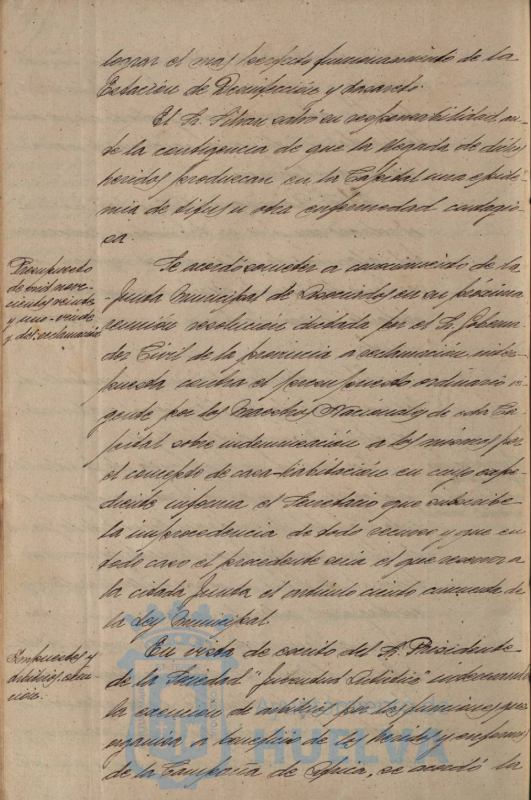 lograr el mas perfecto funcionamiento de la
Estación de Desinfección y Lazareto.
El Sr. salvó su responsabilidad an-
te la contigencia de que la llegada de dichos
heridos produzcan en la Capital una epide-
mia de tifus u otra enfermedad contagio-
sa.
Presupuesto
de mil nove-
cientos veinte
y uno-veinte
y dos. reclamación
Se acordó someter a conocimiento de la
Junta Municipal de Asociados en su próxima
reunión resolución dictada por el Sr. Gober-
dor Civil de la provincia a reclamación inter-
puesta contra el presupuesto ordinario vi-
gente por los Maestros Nacionales de esta Ca-
pital sobre indemnización a los mismos por
el concepto de casa-habitación en cuyo expe-
diente informa el Secretario que subscribe
la improcedencia de todo recurso y que en
todo caso el procedente seria el que reserva a
la citada Junta el artículo ciento cincuenta de
la Ley Municipal.
Impuestos y
arbitrios. exen-
ción.
En vista de escrito del Sr. Presidente
de la Sociedad "Juventud Artística" interesando
la exención de arbitrios por las funciones que
organiza a beneficio de los heridos y enfermos
de la Campaña de Africa, se acordó la
Ayuntamiento de
HUELVA